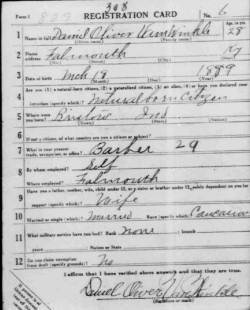 308
Form 1 829 REGISTRATION CARD No. 6
1 Name in full Daniel Oliver Age, in yrs. 28
(Given name) (Family name)
2 Home address Falmouth
3 Date of birth Mch 18 1889
(Month) (Day) (Year)
4 Are you (1) a natural-born citizen, (2) a naturalized citizen, (3) an alien, (4) or have you declared your
intention (specify which)? Natural born Citizen
5 Where were you born? Ind
(Town) (State) (Nation)
6 If not a citizen, of what country are you a citizen or subject?
7 What is your present trade, occupation, or office? Barber 29
8 By whom employed? Self
Where employed? Falmouth
9 Have you a father, mother, wife, child under 12, or a sister or brother under 12, solely dependent on you for
support (specify which)? Wife
10 Married or single (which)? Married Race (specify which)? Caucasian
11 What military service have you had? Rank None ; branch
years Nation or State
12 Do you claim exemption from draft (specify grounds)? No
I affirm that I have verified above answers and that they are true.
Daniel Oliver